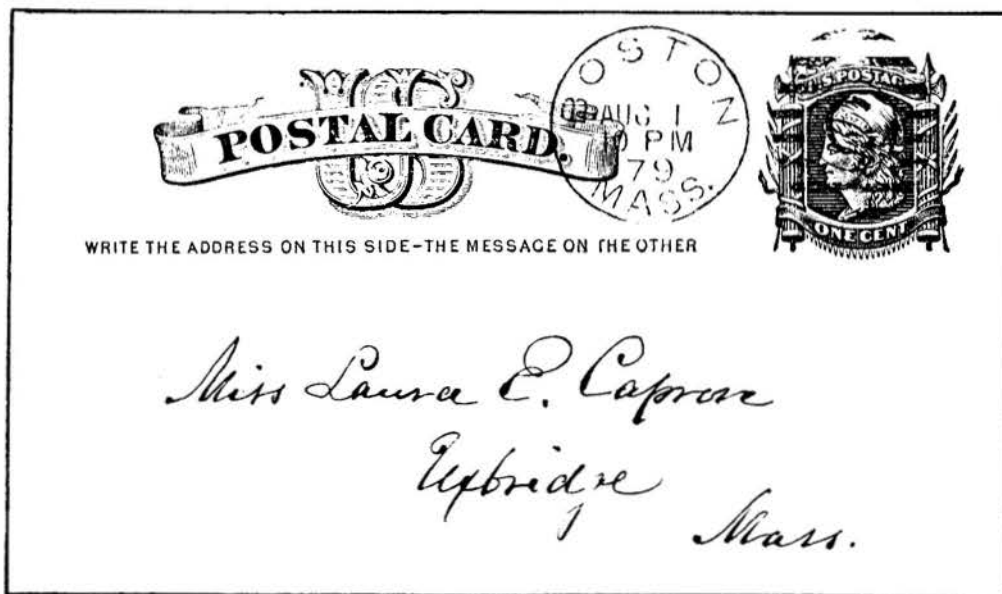 US
POSTAL CARD.
BOSTON
AUG 1
10 PM
79
MASS.
U.S. POSTAGE
ONE CENT
WRITE THE ADDRESS ON THIS SIDE-THE MESSAGE ON THE OTHER
Miss Laura E. Capron
Uxbridge
Mass.